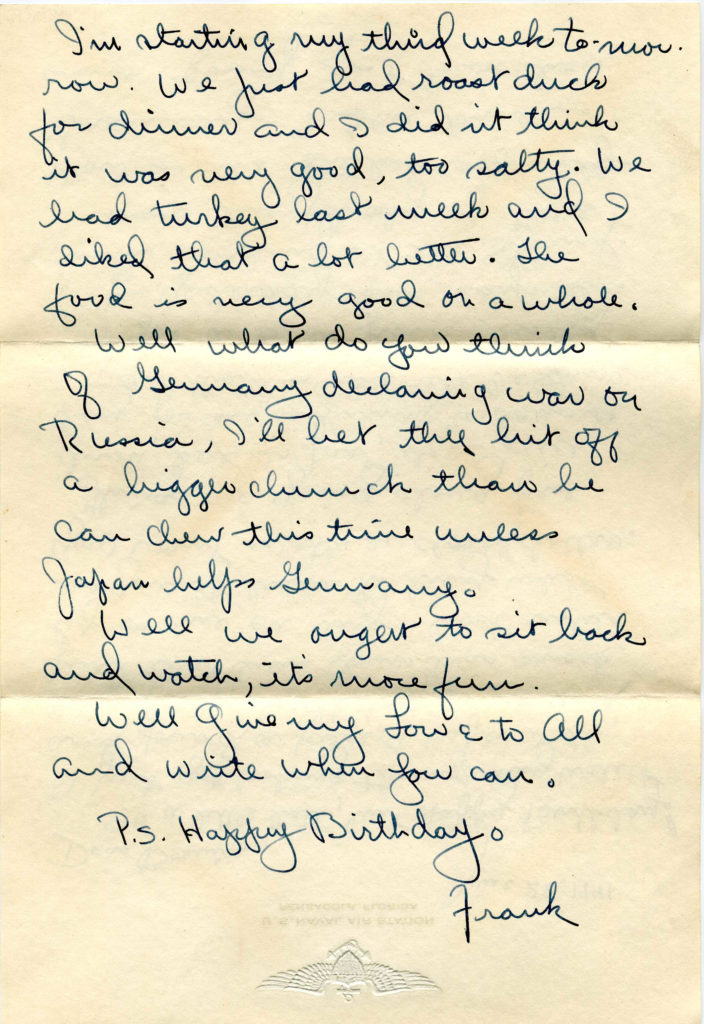 I'm starting my third week to-mor-
row. We just had roast duck
for dinner and I didn't think
it was very good, too salty. We
had turkey last week and I
liked that a lot better. The
food is very good on a whole.
Well what do you think
of Germany declaring war on
Russia, I'll bet they bit off
a bigger chunck than he
can chew this time unless
Japan helps Germany.
Well we ought to sit back
and watch, it's more fun.
Well Give my Love to All
and write when you can.
P.S. Happy Birthday.
Frank
U.S. NAVAL AIR STATION
PENSACOLA, FLORIDA